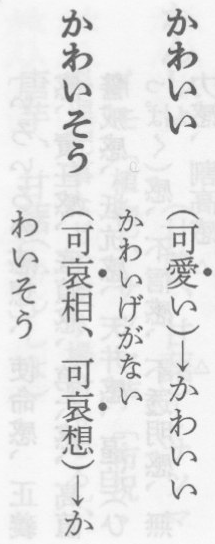 かわいい　(可愛い)→かわいい
かわいげがない
かわいそう　(可哀相、可哀想)→か
わいそう